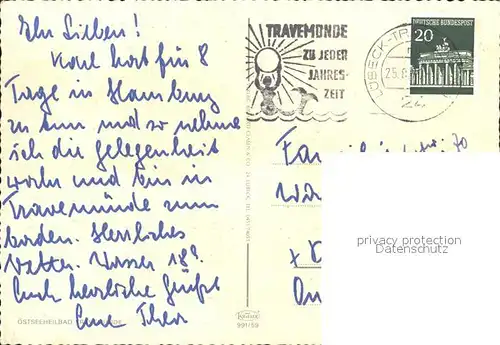 Ihr Lieben!
Karl hat für 8
Tage in Hamburg
zu tun und so nehme
ich die Gelegenheit
wahr und bin in
Travemünde zum
baden. Herrliches
Wetter. Wasser 18°.
Euch herzliche Grüße
Eure
TRAVEMÜNDE
ZU JEDER
JAHRES-
ZEIT
LÜBECK-TR
25.8
24
DEUTSCHE BUNDESPOST
20
privacy protection
Datenschutz
OSTSEEHEILBAD TRAVEMÜNDE
991/59